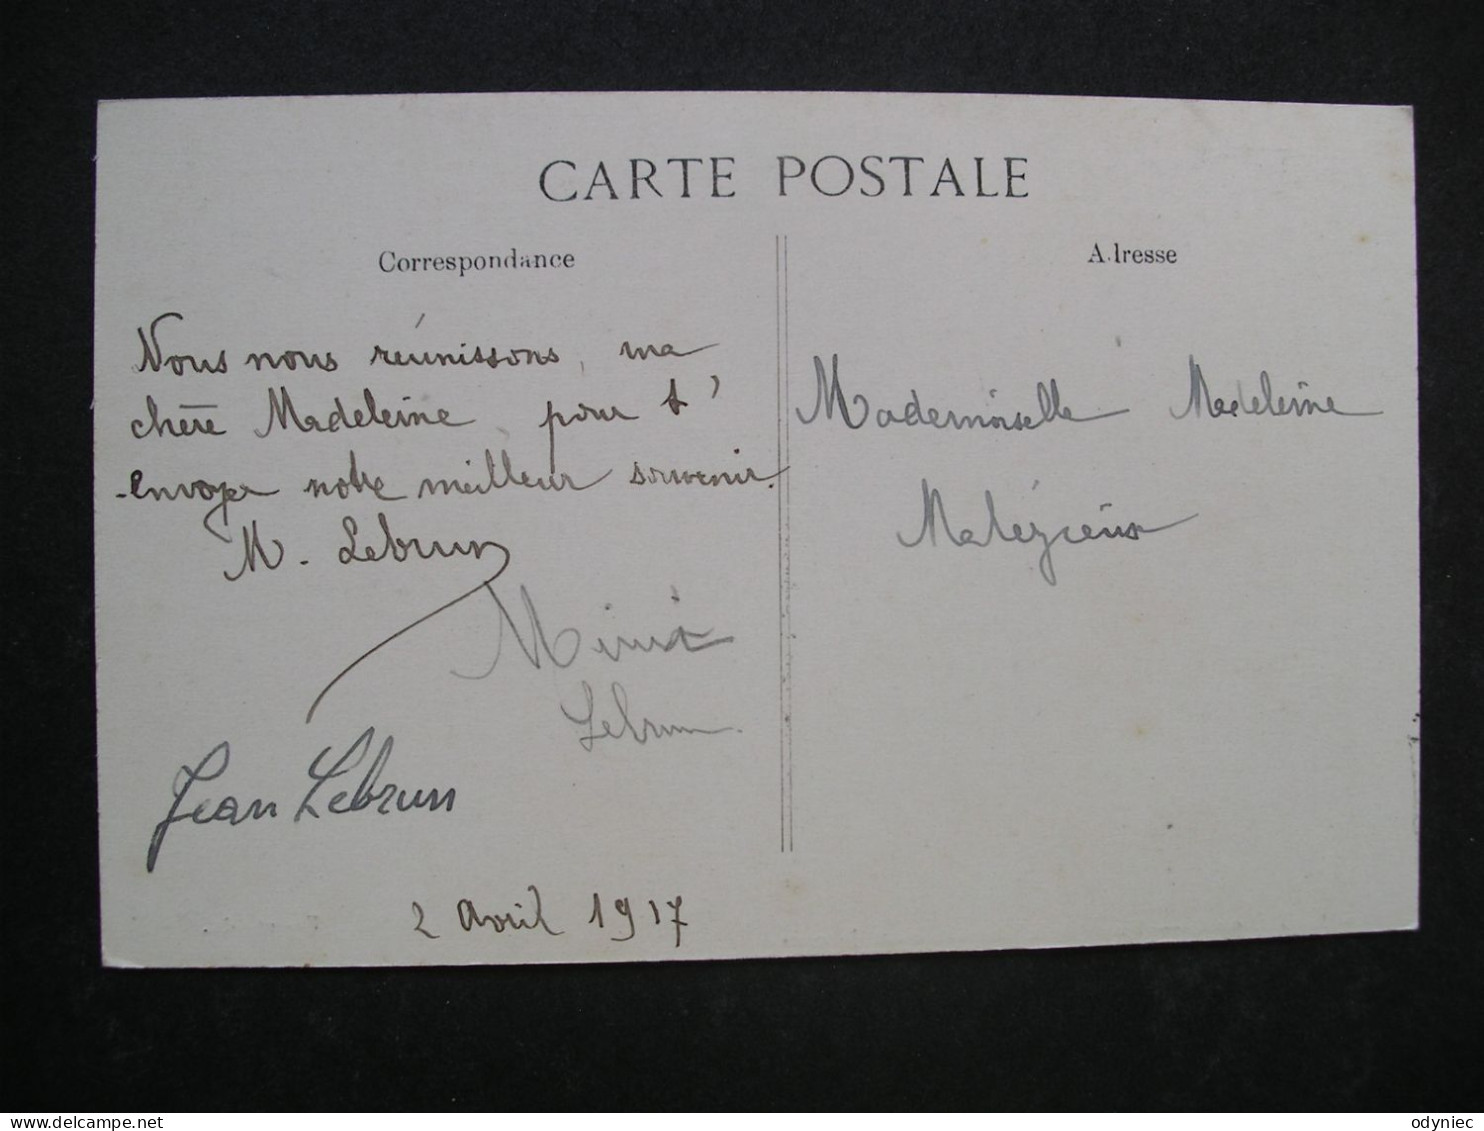 CARTE POSTALE
Correspondance
Adresse
Nous nous réunissons, ma
chère Madeleine pour t'
envoyer notre meilleur souvenir.
M. Lebrun
Lebrun
Jean Lebrun
2 Avril 1917
Mademoiselle Madeleine
Malézieux
odyniec